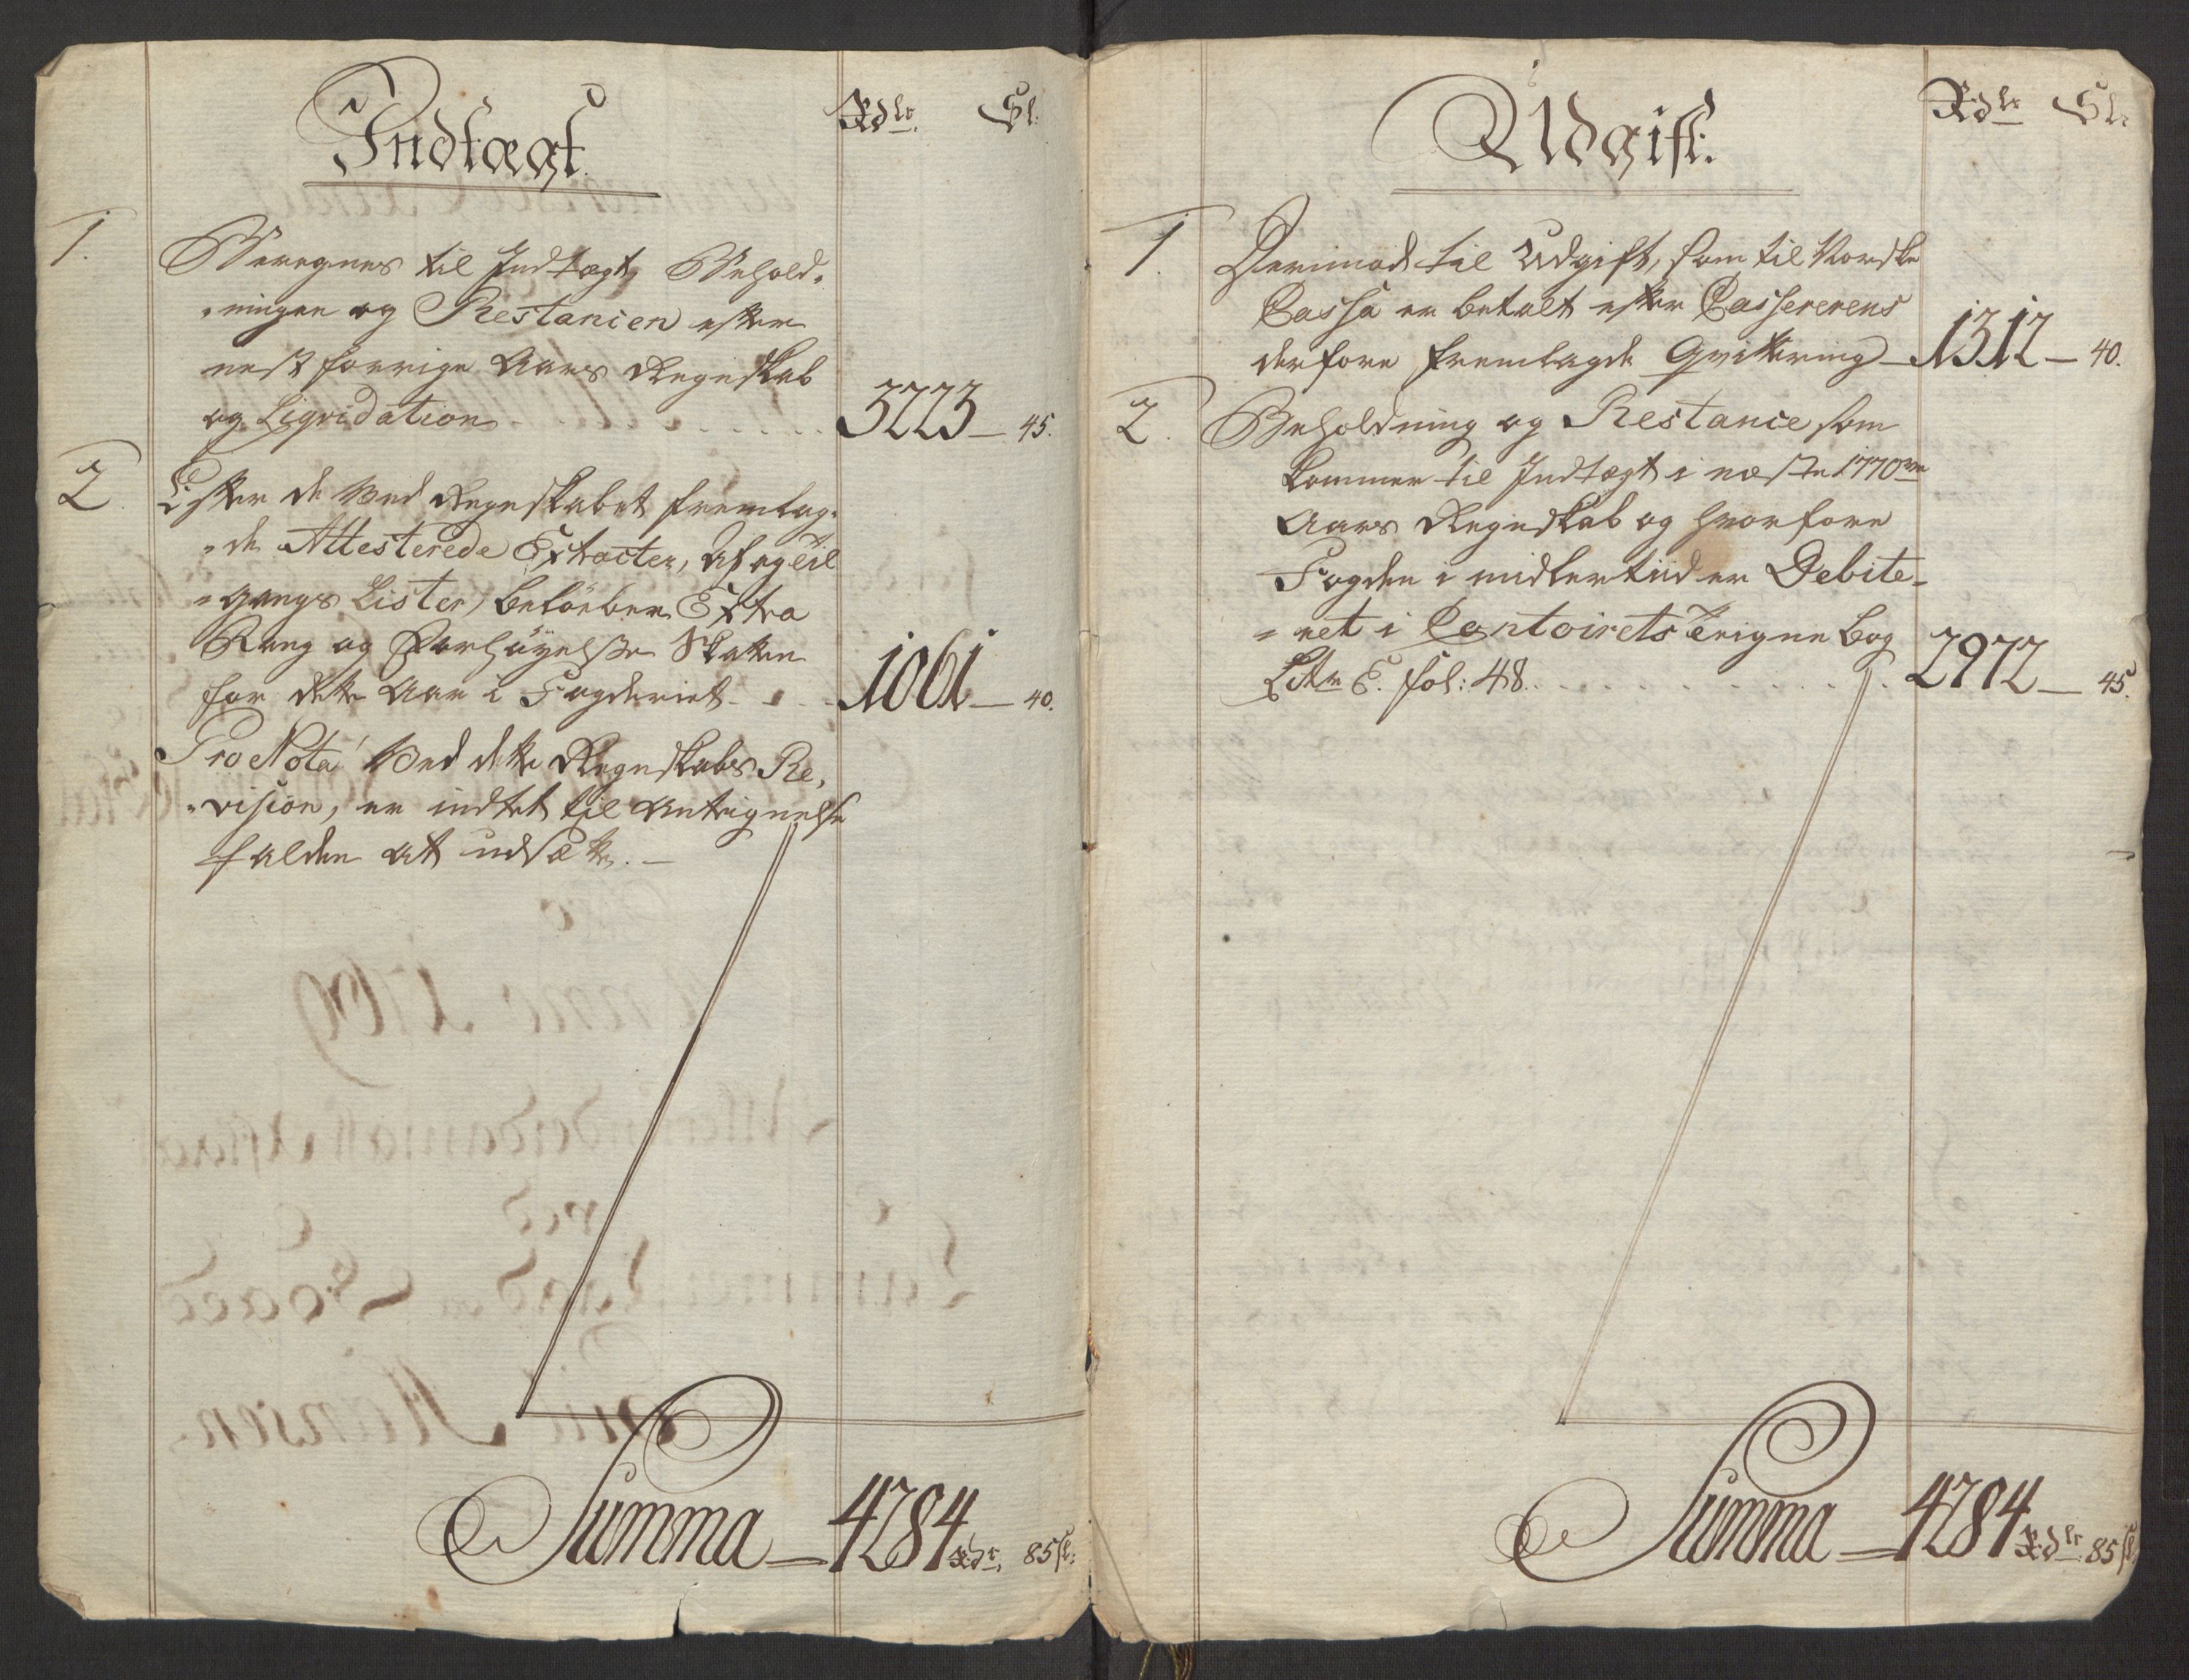 Indtægt.
Rdlr. Sl:
1.
Beregnes til Indtægt Behold„
„ningen og Restancen efter
nest forrige Aars Regnskab
og Liqvidation . . . . . . . . 3223 — 45.
2.
Efter de ved Regnskabet fremlag„
„de Attesterede Extracter, Af og til
„gangs Lister, beløeber Extra
Rang og Forhøyelse Skatten
for dette Aar i Fogderiet - . . 1061 — 40.
Pro Nota Ved dette Regnskabs Re„
„vision, er indtet til Antegnelse
falden at udsætte. —
Summa — 4284 Rdr. 85 sl:
Udgift.
Rdlr Sl:
1.
Derimod til Udgift, som til Norske
Cassa er betalt efter Casserens
derfore fremlagde Qvittering — 1312 — 40.
2.
Beholdning og Restance som
kommer til Indtægt i næste 1770ve
Aars Regnskab og hvorfore
Fogden i midlertiid er Debite-
„ret i Contoirets Bog
Littr E. fol: 48. . . . . . . . . . . 2972 — 45.
Summa — 4284 Rdlr. 85 sl: